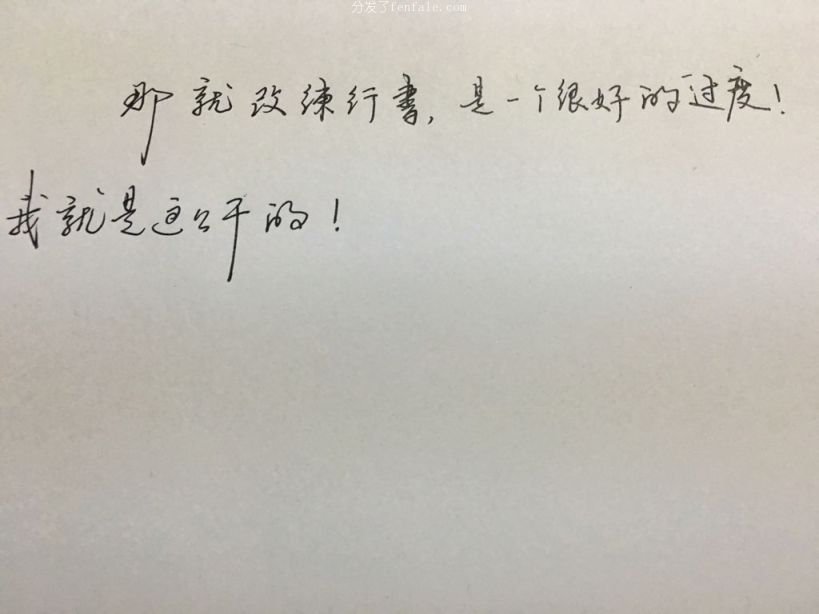 分发了fenfale.com
那就改练行书，是一个很好的过度！
我就是这么干的！